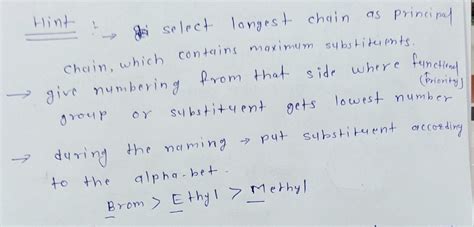 Hint :→ select longest chain as principal
chain, which contains maximum substituents.
→ give numbering from that side where functional
(Priority)
group or substituent gets lowest number
→ during the naming → put substituent according
to the alpha-bet.
Brom > Ethyl > Methyl